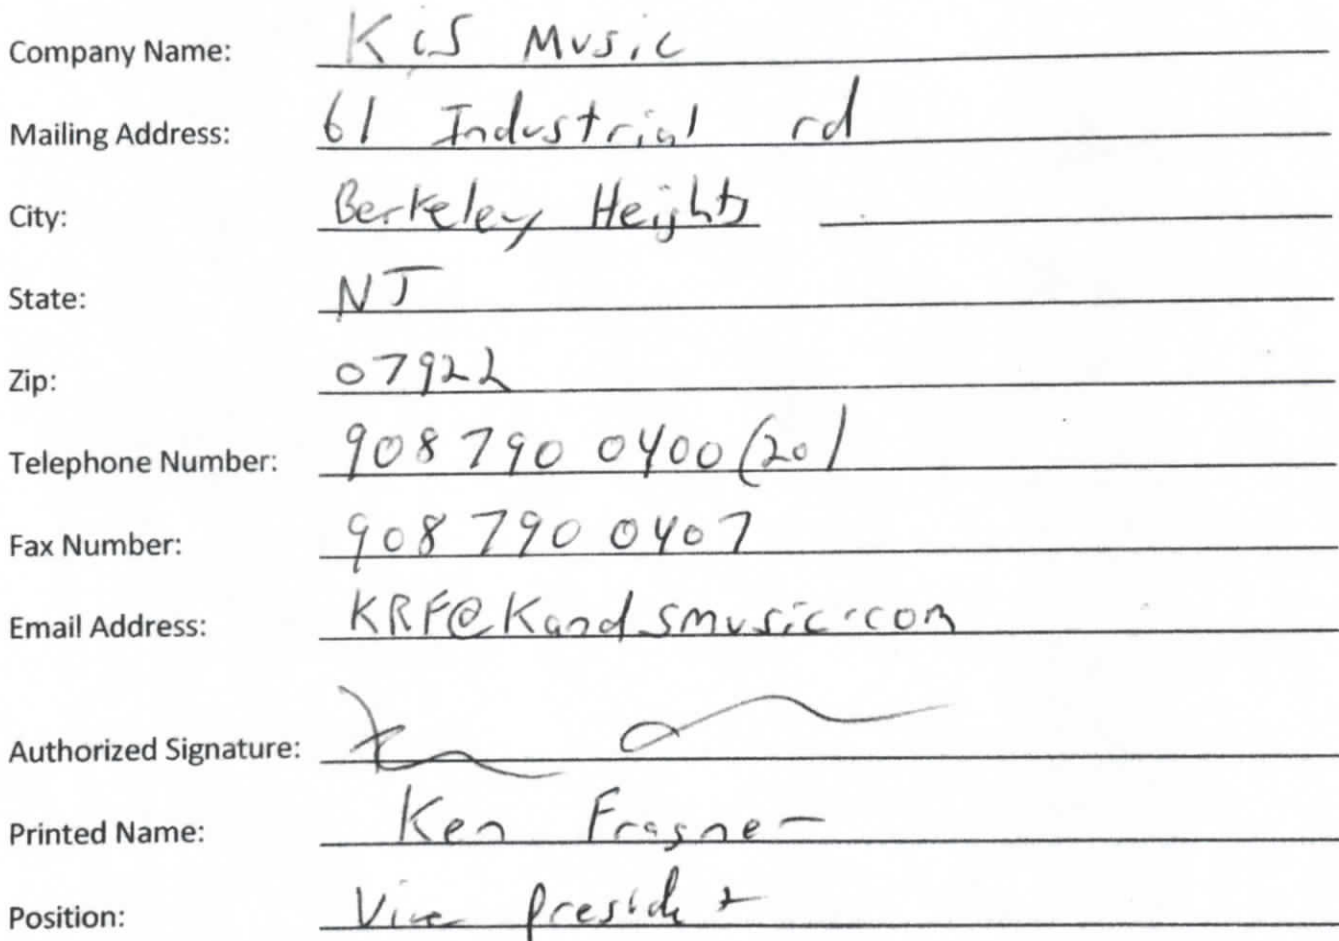 Company Name: K&S Music
Mailing Address: 61 Industrial rd
City: Berkeley Heights
State: NJ
Zip: 07922
Telephone Number: 908 790 0400 (201
Fax Number: 908 790 0407
Email Address: KRF@Kandsmusic.com
Authorized Signature:
Printed Name: Ken Fragner
Position: Vice President